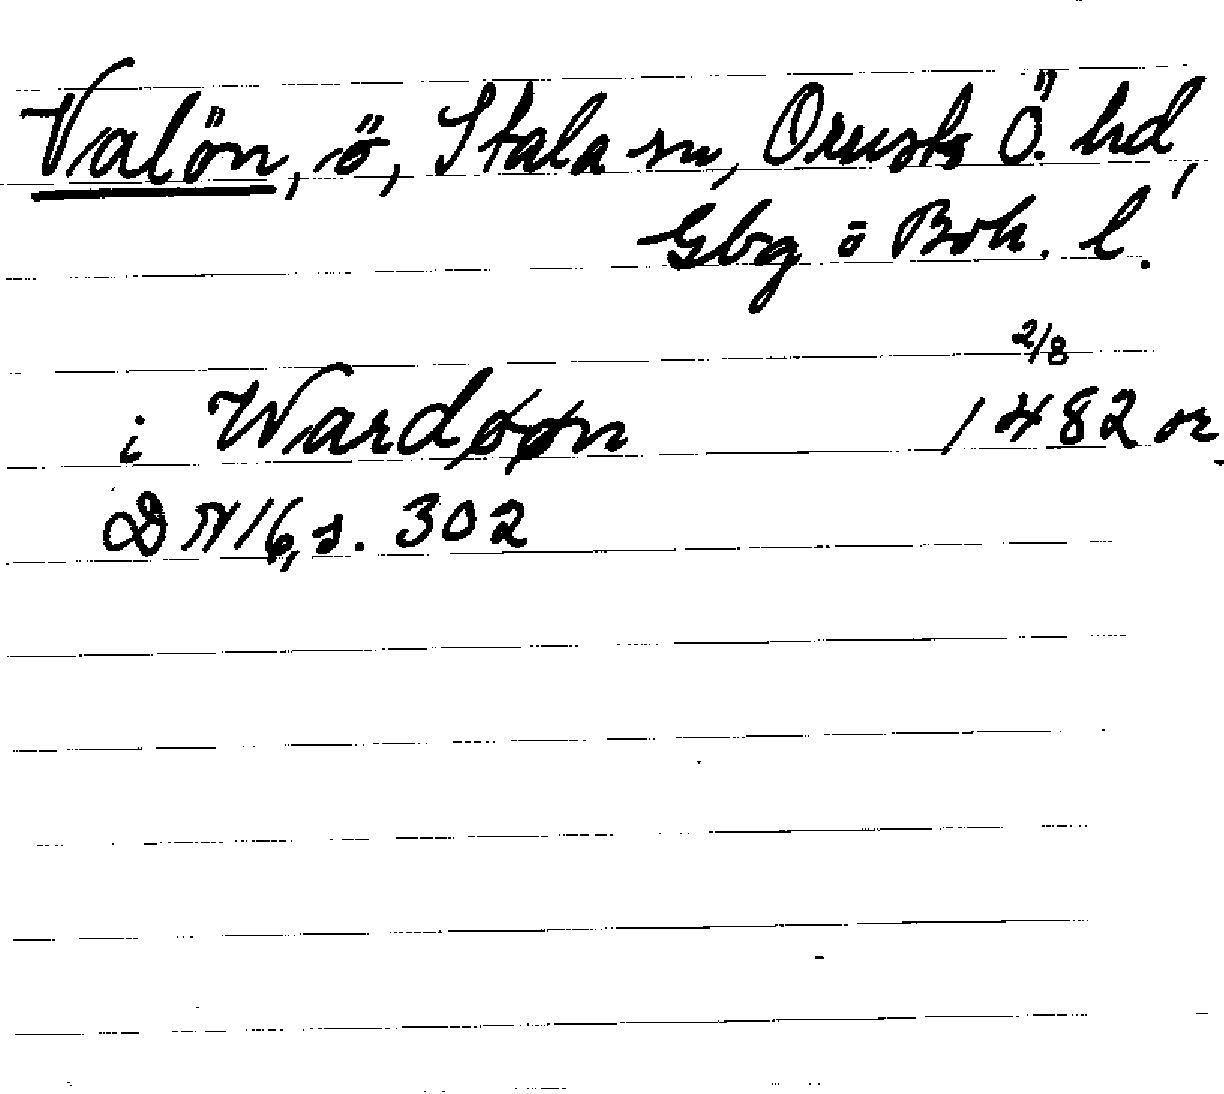 Valön, ö, Stala sn, Orusts Ö. hd,
Gbg o Boh. l.
2/8
i Wardøøn 1482 or
DN 16, s. 302